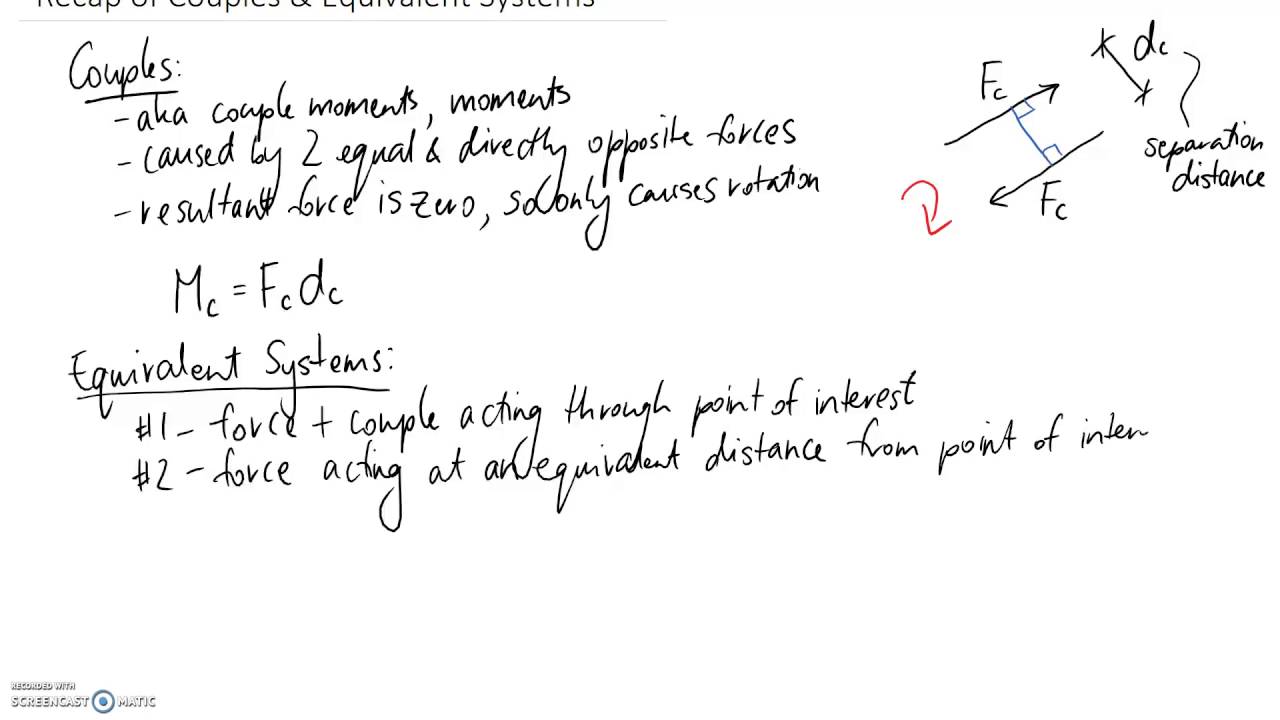 Recap of Couples & Equivalent Systems
Couples:
- aka couple moments, moments
- caused by 2 equal & directly opposite forces
- resultant force is zero, so only causes rotation
Mc = Fc dc
Fc
dc
separation
distance
Fc
Equivalent Systems:
#1 - force + couple acting through point of interest
#2 - force acting at an equivalent distance from point of inter
RECORDED WITH
SCREENCAST MATIC